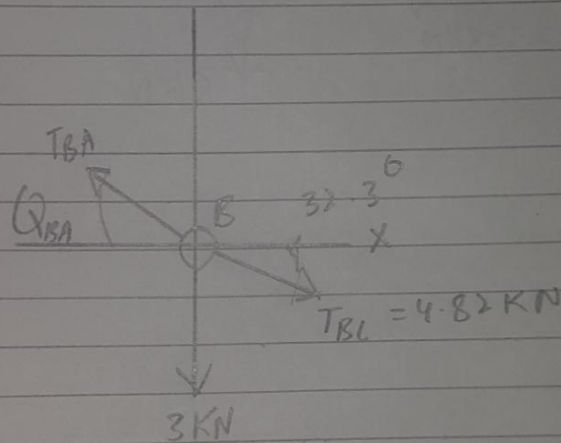 TBA
QBA
B
32.3°
X
TBC = 4.82 KN
3 KN